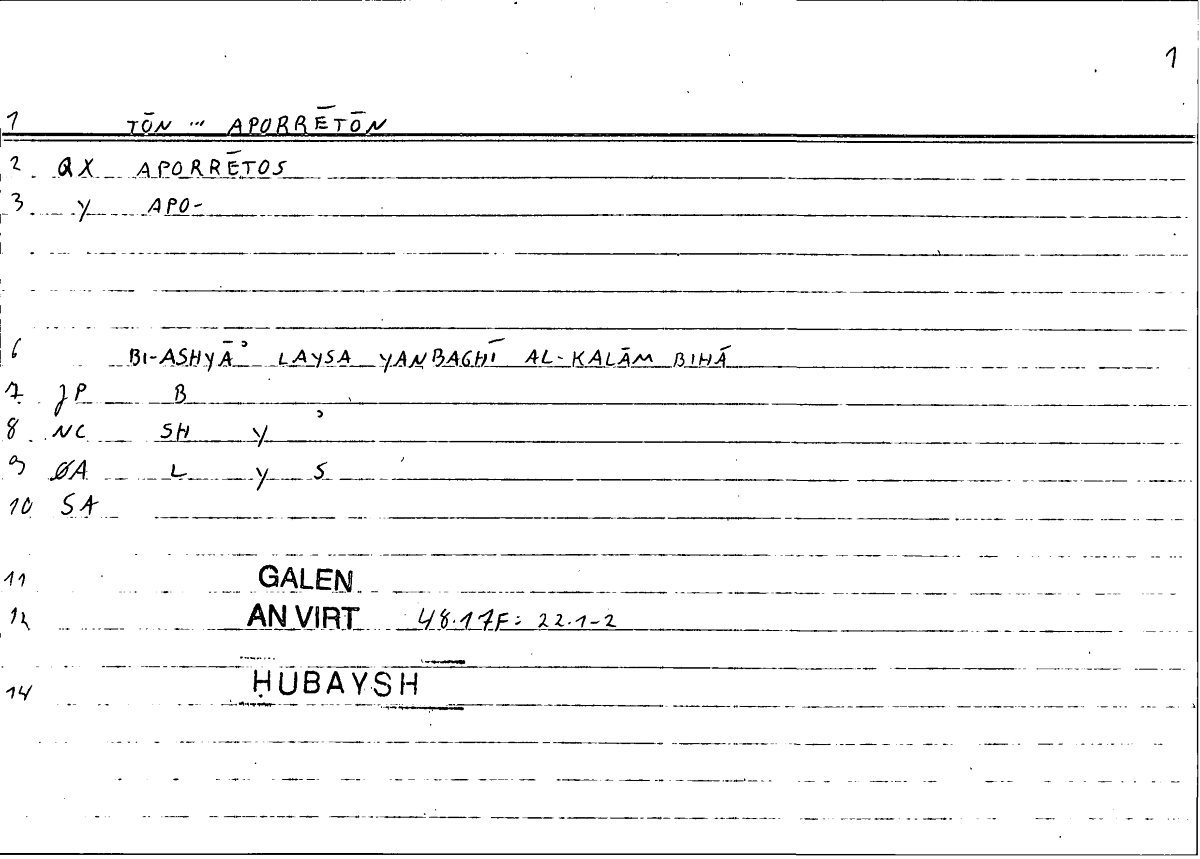 1
1 TŌN ... APORRĒTŌN
2 QX APORRĒTOS
3 Y APO-
6 BI-ASHYĀʾ LAYSA YANBAGHĪ AL-KALĀM BIHĀ
7 JP B
8 NC SH Y ʾ
9 ØA L Y S
10 SA
11 GALEN
12 AN VIRT 48.17F: 22.1-2
14 ḤUBAYSH